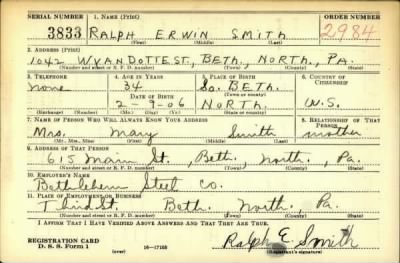 SERIAL NUMBER 1. NAME (Print) ORDER NUMBER
3833 RALPH ERWIN SMITH 2984
(First) (Middle) (Last)
2. ADDRESS (Print)
1042 WYANDOTTE ST., BETH., NORTH., PA.
(Number and street or R. F. D. number) (Town) (County) (State)
3. TELEPHONE 4. AGE IN YEARS 5. PLACE OF BIRTH 6. COUNTRY OF CITIZENSHIP
none 34 So. BETH.
DATE OF BIRTH (Town or county)
2-9-06 NORTH. U.S.
(Exchange) (Number) (Mo.) (Day) (Yr.) (State or country)
7. NAME OF PERSON WHO WILL ALWAYS KNOW YOUR ADDRESS 8. RELATIONSHIP OF THAT PERSON
Mrs. Mary Smith mother
(Mr., Mrs., Miss) (First) (Middle) (Last)
9. ADDRESS OF THAT PERSON
615 Main St., Beth. North., Pa.
(Number and street or R. F. D. number) (Town) (County) (State)
10. EMPLOYER'S NAME
Bethlehem Steel Co.
11. PLACE OF EMPLOYMENT OR BUSINESS
Third St. Beth. North., Pa.
(Number and street or R. F. D. number) (Town) (County) (State)
I AFFIRM THAT I HAVE VERIFIED ABOVE ANSWERS AND THAT THEY ARE TRUE.
REGISTRATION CARD
D. S. S. Form 1 (over) 16—17105 Ralph E. Smith
(Registrant's signature)